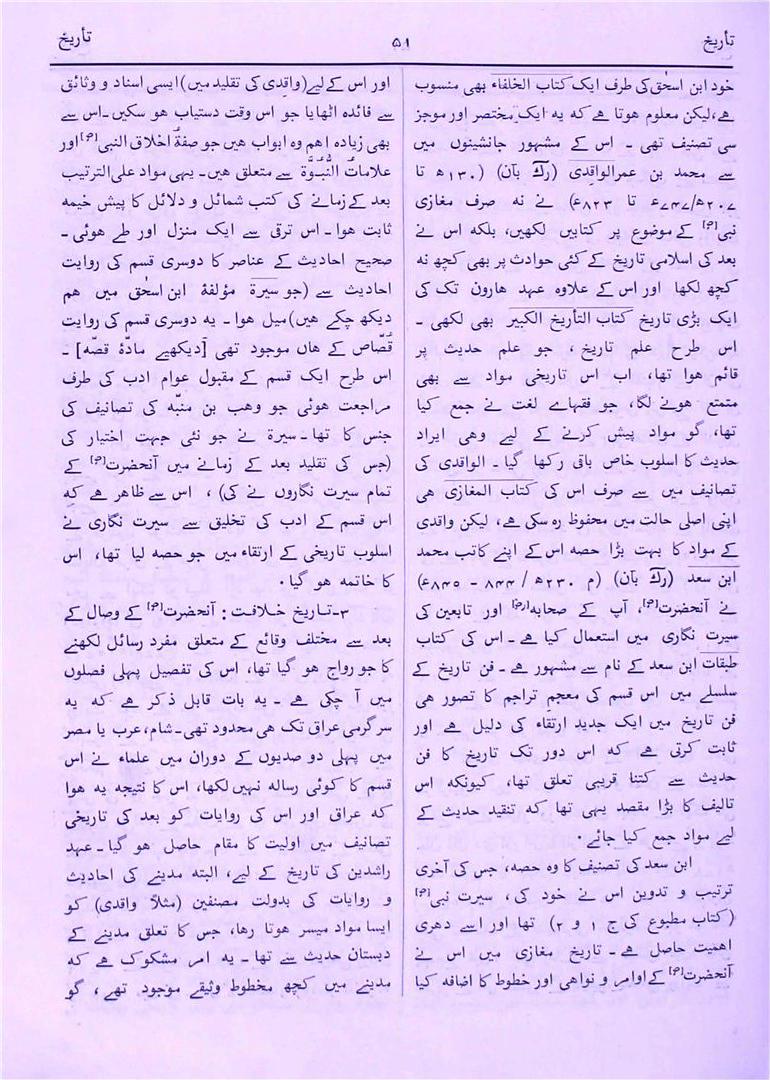 تأریخ
۵۱
تأریخ
خود ابن اسحٰق کی طرف ایک کتاب الخلفاء بھی منسوب
ہے، لیکن معلوم ہوتا ہے کہ یہ ایک مختصر اور موجز
سی تصنیف تھی ۔ اس کے مشہور جانشینوں میں
سے محمد بن عمر الواقدی (رَکَ بآن) (۱۳۰ھ تا
۲۰۷ھ/۷۴۷ء تا ۸۲۳ء) نے نہ صرف مغازی
نبی[ص] کے موضوع پر کتابیں لکھیں، بلکہ اس نے
بعد کی اسلامی تاریخ کے کئی حوادث پر بھی کچھ نہ
کچھ لکھا اور اس کے علاوہ عہد ہارون تک کی
ایک بڑی تاریخ کتاب التأریخ الکبیر بھی لکھی ۔
اس طرح علم تاریخ ، جو علم حدیث پر
قائم ہوا تھا، اب اس تاریخی مواد سے بھی
متمتع ہونے لگا، جو فقہاے لغت نے جمع کیا
تھا، گو مواد پیش کرنے کے لیے وہی ایراد
حدیث کا اسلوب خاص باقی رکھا گیا ۔ الواقدی کی
تصانیف میں سے صرف اس کی کتاب المغازی ہی
اپنی اصلی حالت میں محفوظ رہ سکی ہے، لیکن واقدی
کے مواد کا بہت بڑا حصہ اس کے اپنے کاتب محمد
ابن سعد (رَکَ بآن) (م ۲۳۰ھ / ۸۴۴ - ۸۴۵ء)
نے آنحضرت[ص]، آپ کے صحابہ[رض] اور تابعین کی
سیرت نگاری میں استعمال کیا ہے ۔ اس کی کتاب
طبقات ابن سعد کے نام سے مشہور ہے ۔ فن تاریخ کے
سلسلے میں اس قسم کی معجم تراجم کا تصور ہی
فن تاریخ میں ایک جدید ارتقاء کی دلیل ہے اور
ثابت کرتی ہے کہ اس دور تک تاریخ کا فن
حدیث سے کتنا قریبی تعلق تھا، کیونکہ اس
تالیف کا بڑا مقصد یہی تھا کہ تنقید حدیث کے
لیے مواد جمع کیا جائے ۔
ابن سعد کی تصنیف کا وہ حصہ، جس کی آخری
ترتیب و تدوین اس نے خود کی، سیرت نبی[ص]
(کتاب مطبوع کی ج ۱ و ۲) تھا اور اسے دہری
اہمیت حاصل ہے ۔ تاریخ مغازی میں اس نے
آنحضرت[ص] کے اوامر و نواہی اور خطوط کا اضافہ کیا
اور اس کے لیے (واقدی کی تقلید میں) ایسی اسناد و وثائق
سے فائدہ اٹھایا جو اس وقت دستیاب ہو سکیں ۔ اس سے
بھی زیادہ اہم وہ ابواب ہیں جو صفۃُ اخلاق النبی[ص] اور
علاماتُ النُّبُوَّۃ سے متعلق ہیں ۔ یہی مواد علی الترتیب
بعد کے زمانے کی کتب شمائل و دلائل کا پیش خیمہ
ثابت ہوا ۔ اس ترقی سے ایک منزل اور طے ہوئی ۔
صحیح احادیث کے عناصر کا دوسری قسم کی روایت
احادیث سے (جو سیرۃ مؤلفۂ ابن اسحٰق میں ہم
دیکھ چکے ہیں) میل ہوا ۔ یہ دوسری قسم کی روایت
قُصّاص کے ہاں موجود تھی [دیکھیے مادّۂ قصّہ] ۔
اس طرح ایک قسم کے مقبول عوام ادب کی طرف
مراجعت ہوئی جو وہب بن منبّہ کی تصانیف کی
جنس کا تھا ۔ سیرۃ نے جو نئی جہت اختیار کی
(جس کی تقلید بعد کے زمانے میں آنحضرت[ص] کے
تمام سیرت نگاروں نے کی) ، اس سے ظاہر ہے کہ
اس قسم کے ادب کی تخلیق سے سیرت نگاری نے
اسلوب تاریخی کے ارتقاء میں جو حصہ لیا تھا، اس
کا خاتمہ ہو گیا ۔
۳-تاریخ خلافت : آنحضرت[ص] کے وصال کے
بعد سے مختلف وقائع کے متعلق مفرد رسائل لکھنے
کا جو رواج ہو گیا تھا، اس کی تفصیل پہلی فصلوں
میں آ چکی ہے ۔ یہ بات قابل ذکر ہے کہ یہ
سرگرمی عراق تک ہی محدود تھی ۔ شام، عرب یا مصر
میں پہلی دو صدیوں کے دوران میں علماء نے اس
قسم کا کوئی رسالہ نہیں لکھا، اس کا نتیجہ یہ ہوا
کہ عراق اور اس کی روایات کو بعد کی تاریخی
تصانیف میں اولیت کا مقام حاصل ہو گیا ۔ عہد
راشدین کی تاریخ کے لیے، البتہ مدینے کی احادیث
و روایات کی بدولت مصنفین (مثلاً واقدی) کو
ایسا مواد میسر ہوتا رہا، جس کا تعلق مدینے کے
دبستان حدیث سے تھا ۔ یہ امر مشکوک ہے کہ
مدینے میں کچھ مخطوط وثیقے موجود تھے ، گو